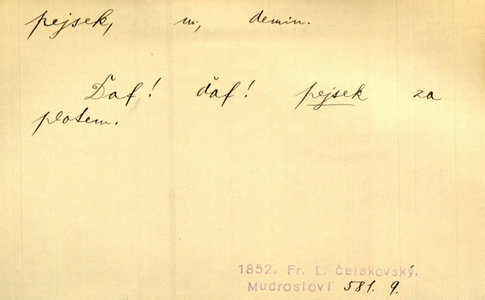 pejsek, m, demin.
Ďaf! ďaf! pejsek za
plotem.
1852. Fr. L. Čelakovský,
Mudrosloví 581. 9.